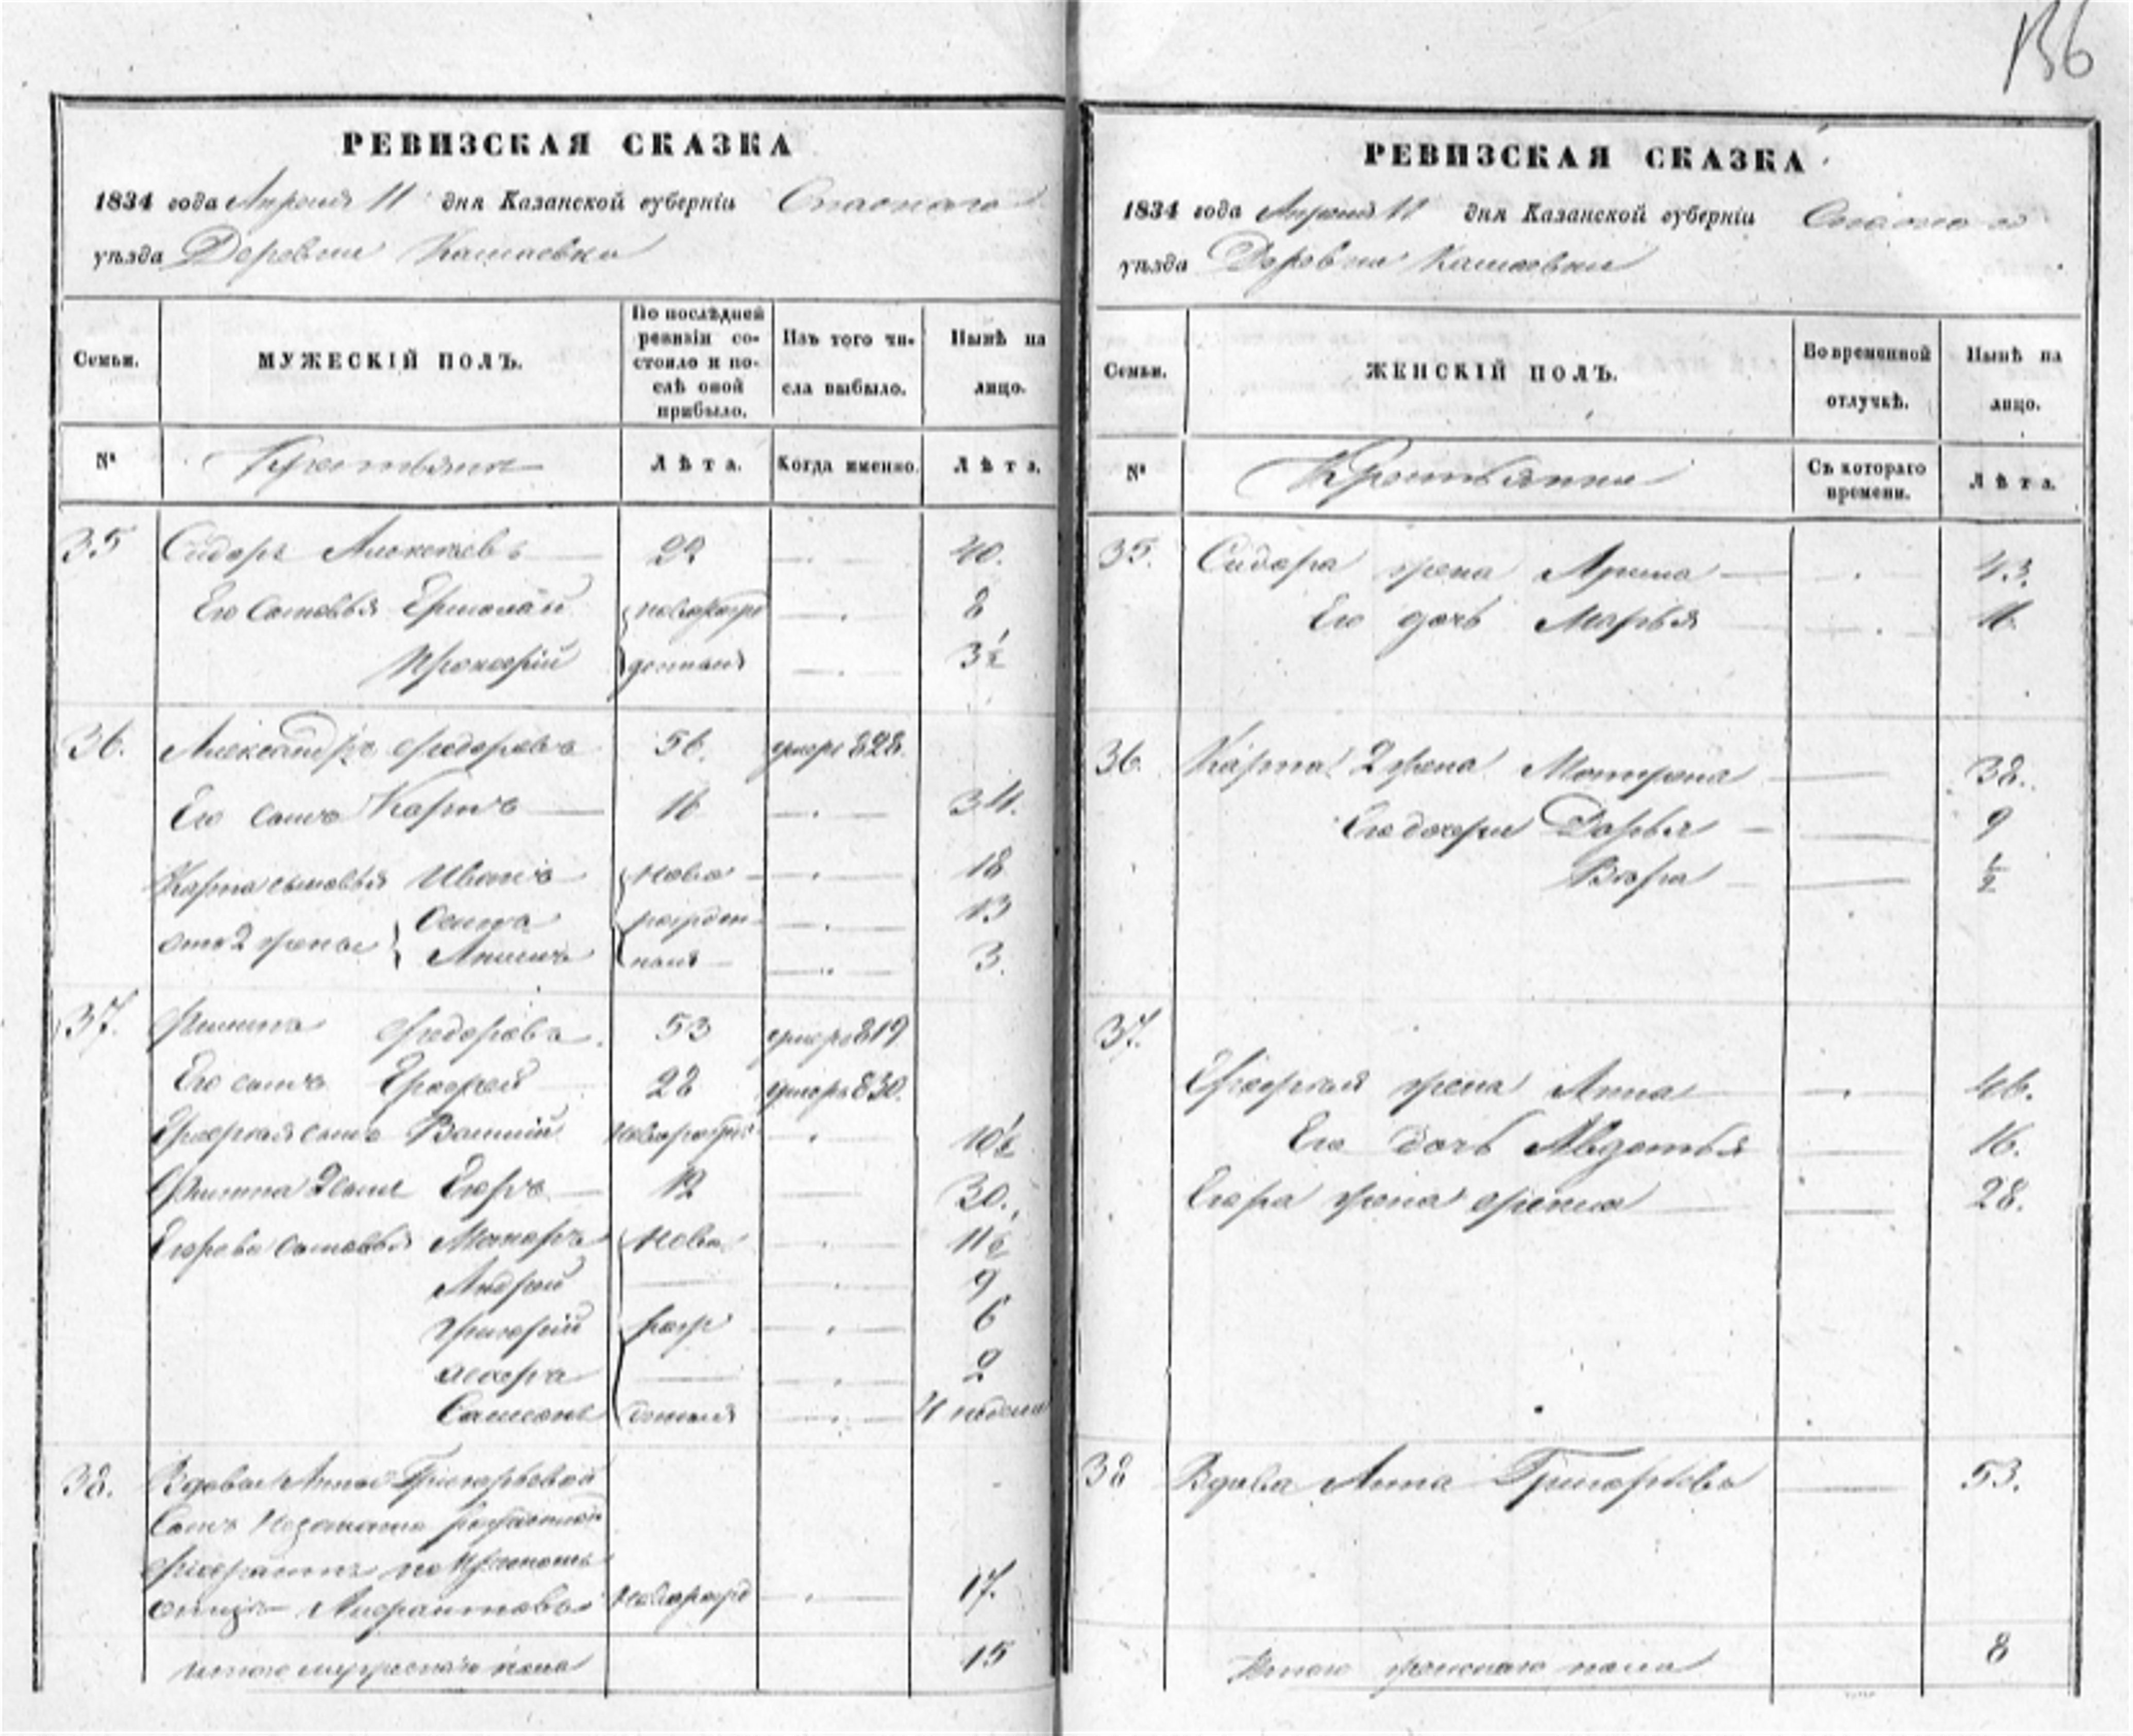 136
РЕВИЗСКАЯ СКАЗКА
1834 года Апреля 11 дня Казанской губерніи Спаскаго
уѣзда Деревни Кашаевки
Семьи.
МУЖЕСКІЙ ПОЛЪ.
По послѣдней ревизіи состояло и послѣ оной прибыло.
Изъ того числа выбыло.
Нынѣ на лицо.
№ Крестьяне Лѣта. Когда именно. Лѣта.
35 Сидоръ Алексеевъ 22 40.
Его сыновья Ермолай новорож 8
Прокофий деныя 3½
36. Александръ Федоровъ 56. умеръ 828.
Его сынъ Карпъ 16 34.
Карпа сыновья Иванъ ново 18
отъ 2 жены Осипъ рожден 13
ныя 3.
37. Филипъ Федоровъ. 53 умеръ 819
Его сынъ Ефрей 28 умеръ 830.
сынъ новорожд 10½
Филипа 2 сынъ Егоръ 12 30.
Егорова сыновья Макаръ ново 11½
Андрей 9
Григорий рож 6
2
Самсонъ деныя 4 недели
38. Вдовы Анны Григорьевой
сынъ незаконно рожденной
по
отцу новорожд 17.
Итого мужескаго пола 15
РЕВИЗСКАЯ СКАЗКА
1834 года Апреля 11 дня Казанской губерніи
уѣзда Деревни Кашаевки
Семьи.
ЖЕНСКІЙ ПОЛЪ.
Во временной отлучкѣ.
Нынѣ на лицо.
№ Крестьянки Съ котораго времени. Лѣта.
35. Сидора жена Арина 43.
Его дочь Марья 16.
36. Карпа 2 жена Матрена 38.
Его дочери Дарья 9
Вера ½
37.
жена Анна 46.
Его дочь Авдотья 16.
Егора жена 28.
38 Вдова Анна Григорьева 53.
Итого женскаго пола 8